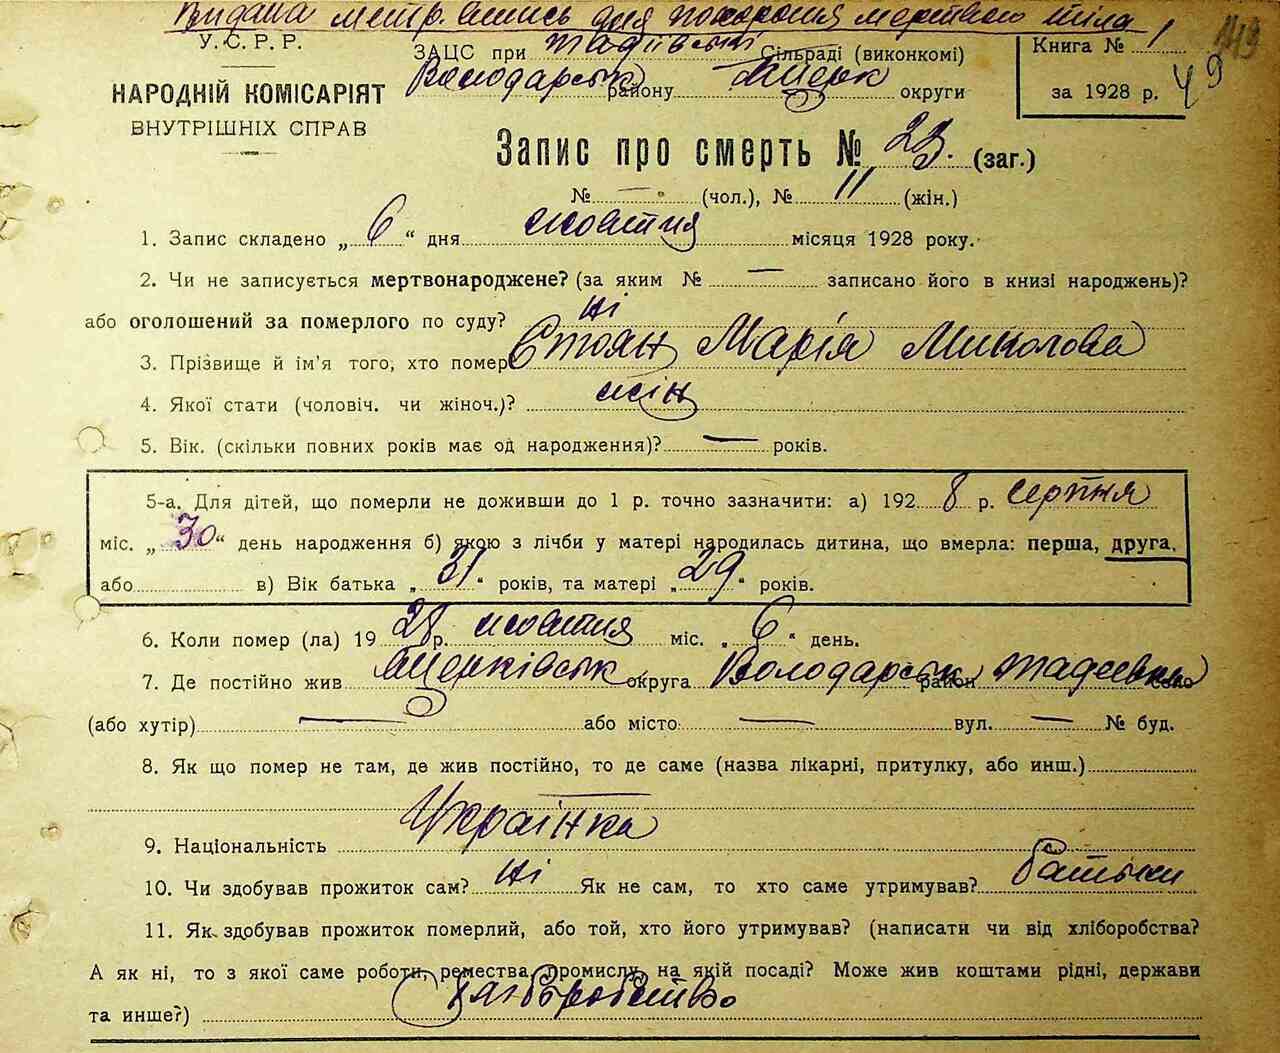 Видана метр. випись для похорона мертвого тіла
У.С.Р.Р.
НАРОДНІЙ КОМІСАРІЯТ
ВНУТРІШНІХ СПРАВ
ЗАЦС при Тадіївські Сільраді (виконкомі)
Володарськ району Б/Церк округи
Книга № 1
за 1928 р.
49
Запис про смерть № 23. (заг.)
№ — (чол.), № 11 (жін.)
1. Запис складено „ 6 “ дня жовтня місяця 1928 року.
2. Чи не записується мертвонароджене? (за яким № — записано його в книзі народжень)?
або оголошений за померлого по суду? Ні
3. Прізвище й ім'я того, хто помер Стоян Марія Миколова
4. Якої стати (чоловіч. чи жіноч.)? жін
5. Вік. (скільки повних років має од народження)? — років.
5-а. Для дітей, що померли не доживши до 1 р. точно зазначити: а) 192 8 р. серпня
міс. „ 30 “ день народження б) якою з лічби у матері народилась дитина, що вмерла: перша, друга,
або в) Вік батька „ 31 “ років, та матері „ 29 “ років.
6. Коли помер (ла) 19 28 р. жовтня міс. „ 6 “ день.
7. Де постійно жив Б/Церківськ округа Володарськ район Тадеевка село
(або хутір) — або місто: — вул. — № буд.
8. Як що помер не там, де жив постійно, то де саме (назва лікарні, притулку, або инш.)
—
9. Національність Українка
10. Чи здобував прожиток сам? Ні Як не сам, то хто саме утримував? батьки
11. Як здобував прожиток померлий, або той, хто його утримував? (написати чи від хліборобства?
А як ні, то з якої саме роботи, ремества, промислу, на якій посаді? Може жив коштами рідні, держави
та инше?) Хліборобство